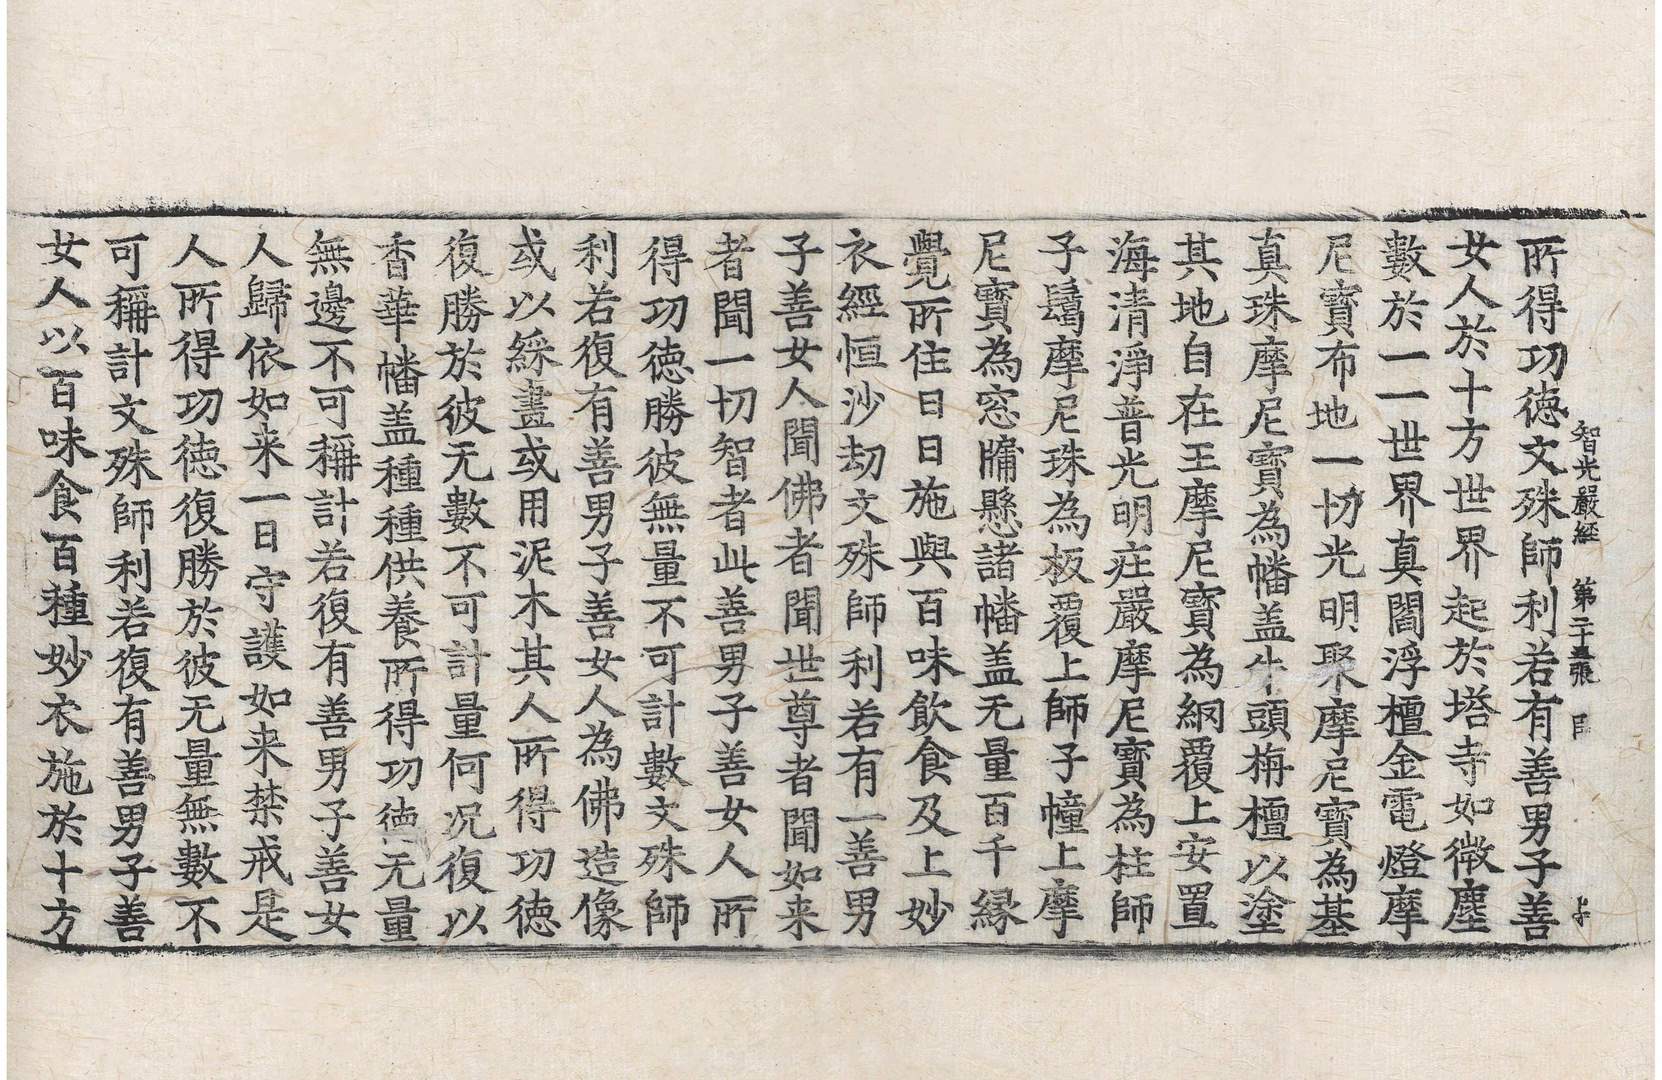 智光嚴經 第二十五張
所得功徳文殊師利若有善男子善
女人於十方世界起於塔寺如微塵
數於一一世界真閻浮檀金電燈摩
尼寶布地一切光明聚摩尼寶為基
真珠摩尼寶為幡盖牛頭栴檀以塗
其地自在王摩尼寶為網覆上安置
海清淨普光明莊嚴摩尼寶為柱師
子髻摩尼珠為板覆上師子幢上摩
尼寶為窓牖懸諸幡盖无量百千縁
覺所住日日施與百味飲食及上妙
衣經恒沙劫文殊師利若有一善男
子善女人聞佛者聞世尊者聞如来
者聞一切智者此善男子善女人所
得功徳勝彼無量不可計數文殊師
利若復有善男子善女人為佛造像
或以綵畫或用泥木其人所得功徳
復勝於彼无數不可計量何况復以
香華幡盖種種供養所得功徳无量
無邊不可稱計若復有善男子善女
人歸依如来一日守護如来禁戒是
人所得功徳復勝於彼无量無數不
可稱計文殊師利若復有善男子善
女人以百味食百種妙衣施於十方